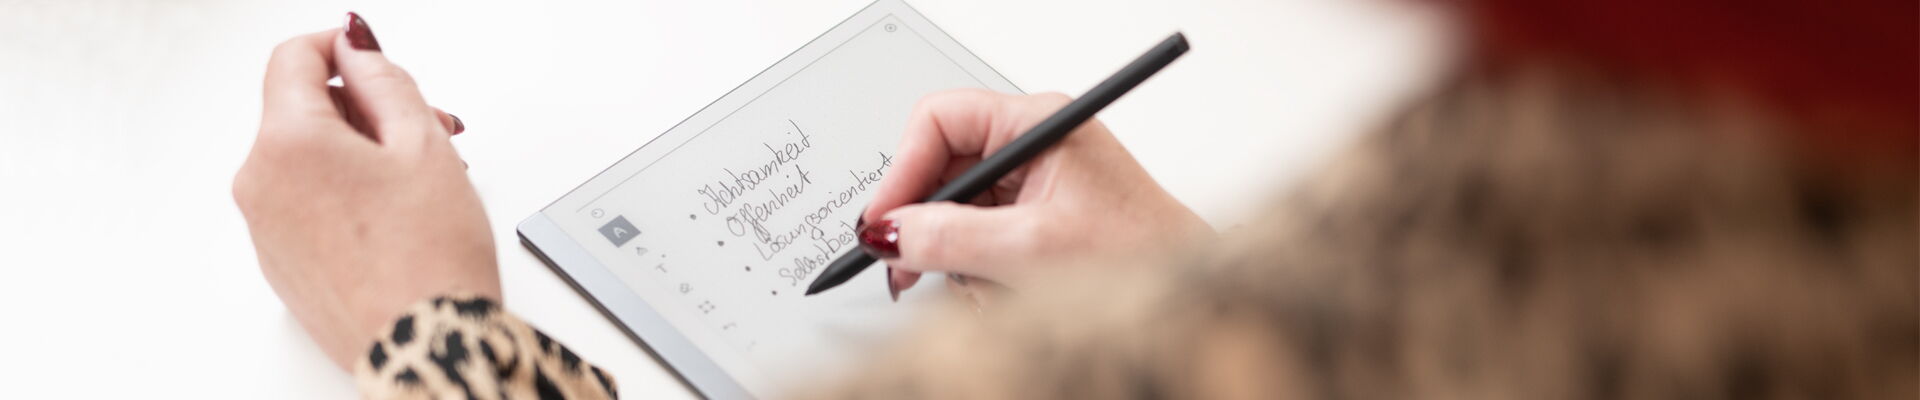 • Achtsamkeit
• Offenheit
• Lösungsorientiert
• Selbstbest
A
T